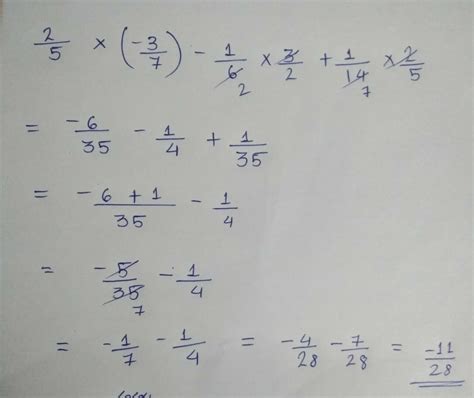 2/5 × (-3/7) - 1/6 × 3/2 + 1/14 × 2/5
2 7
= -6/35 - 1/4 + 1/35
= -6+1/35 - 1/4
= -5/35 - 1/4
7
= -1/7 - 1/4 = -4/28 - 7/28 = -11/28